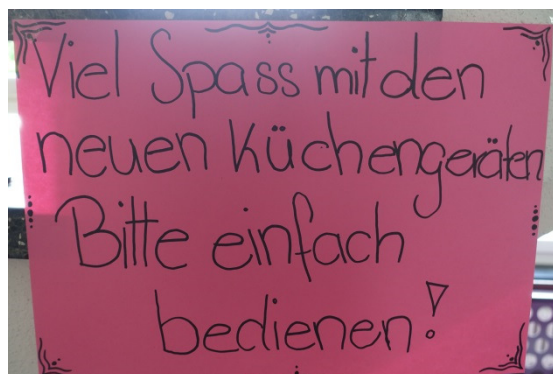 Viel Spass mit den
neuen Küchengeräten
Bitte einfach
bedienen!